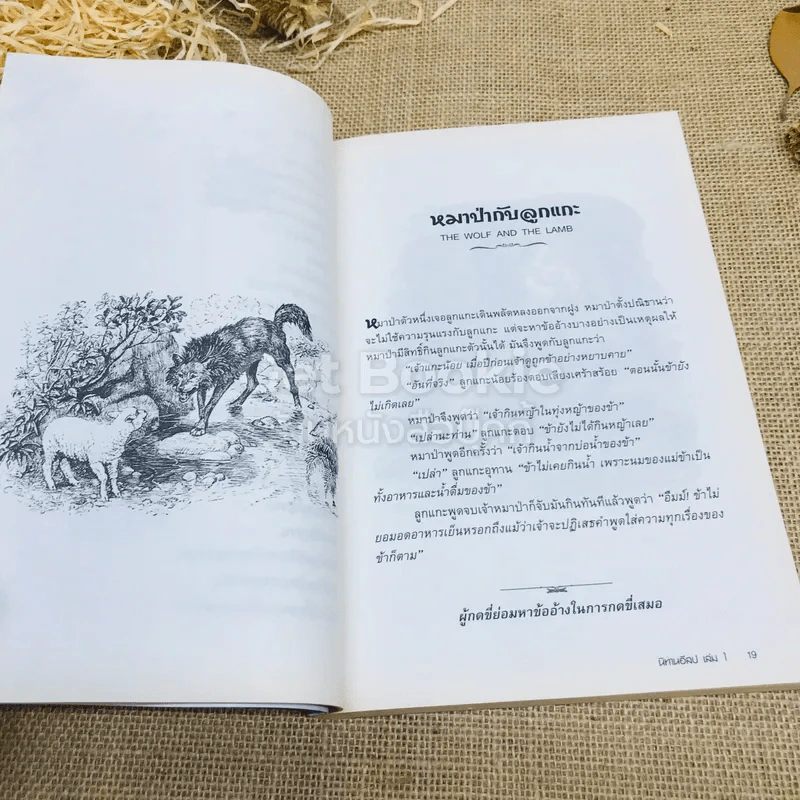 หมาป่ากับลูกแกะ
THE WOLF AND THE LAMB
หมาป่าตัวหนึ่งเจอลูกแกะเดินพลัดหลงออกจากฝูง หมาป่าตั้งปณิธานว่า
จะไม่ใช้ความรุนแรงกับลูกแกะ แต่จะหาข้ออ้างบางอย่างเป็นเหตุผลให้
หมาป่ามีสิทธิ์กินลูกแกะตัวนั้นได้ มันจึงพูดกับลูกแกะว่า
"เจ้าแกะน้อย เมื่อปีก่อนเจ้าดูถูกข้าอย่างหยาบคาย"
"อันที่จริง" ลูกแกะน้อยร้องตอบเสียงเศร้าสร้อย "ตอนนั้นข้ายัง
ไม่เกิดเลย"
หมาป่าจึงพูดว่า "เจ้ากินหญ้าในทุ่งหญ้าของข้า"
"เปล่านะท่าน" ลูกแกะตอบ "ข้ายังไม่ได้กินหญ้าเลย"
หมาป่าพูดอีกครั้งว่า "เจ้ากินน้ำจากบ่อน้ำของข้า"
"เปล่า" ลูกแกะอุทาน "ข้าไม่เคยกินน้ำ เพราะนมของแม่ข้าเป็น
ทั้งอาหารและน้ำดื่มของข้า"
ลูกแกะพูดจบเจ้าหมาป่าก็จับมันกินทันทีแล้วพูดว่า "อืมม์! ข้าไม่
ยอมอดอาหารเย็นหรอกถึงแม้ว่าเจ้าจะปฏิเสธคำพูดใส่ความทุกเรื่องของ
ข้าก็ตาม"
ผู้กดขี่ย่อมหาข้ออ้างในการกดขี่เสมอ
นิทานอีสป เล่ม 1 19